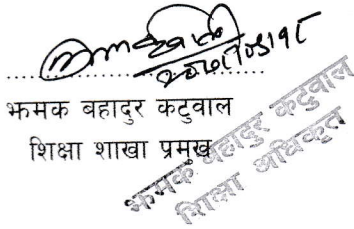 झमक बहादुर कटुवाल
शिक्षा शाखा प्रमुख
झमक बहादुर कटुवाल
शिक्षा अधिकृत